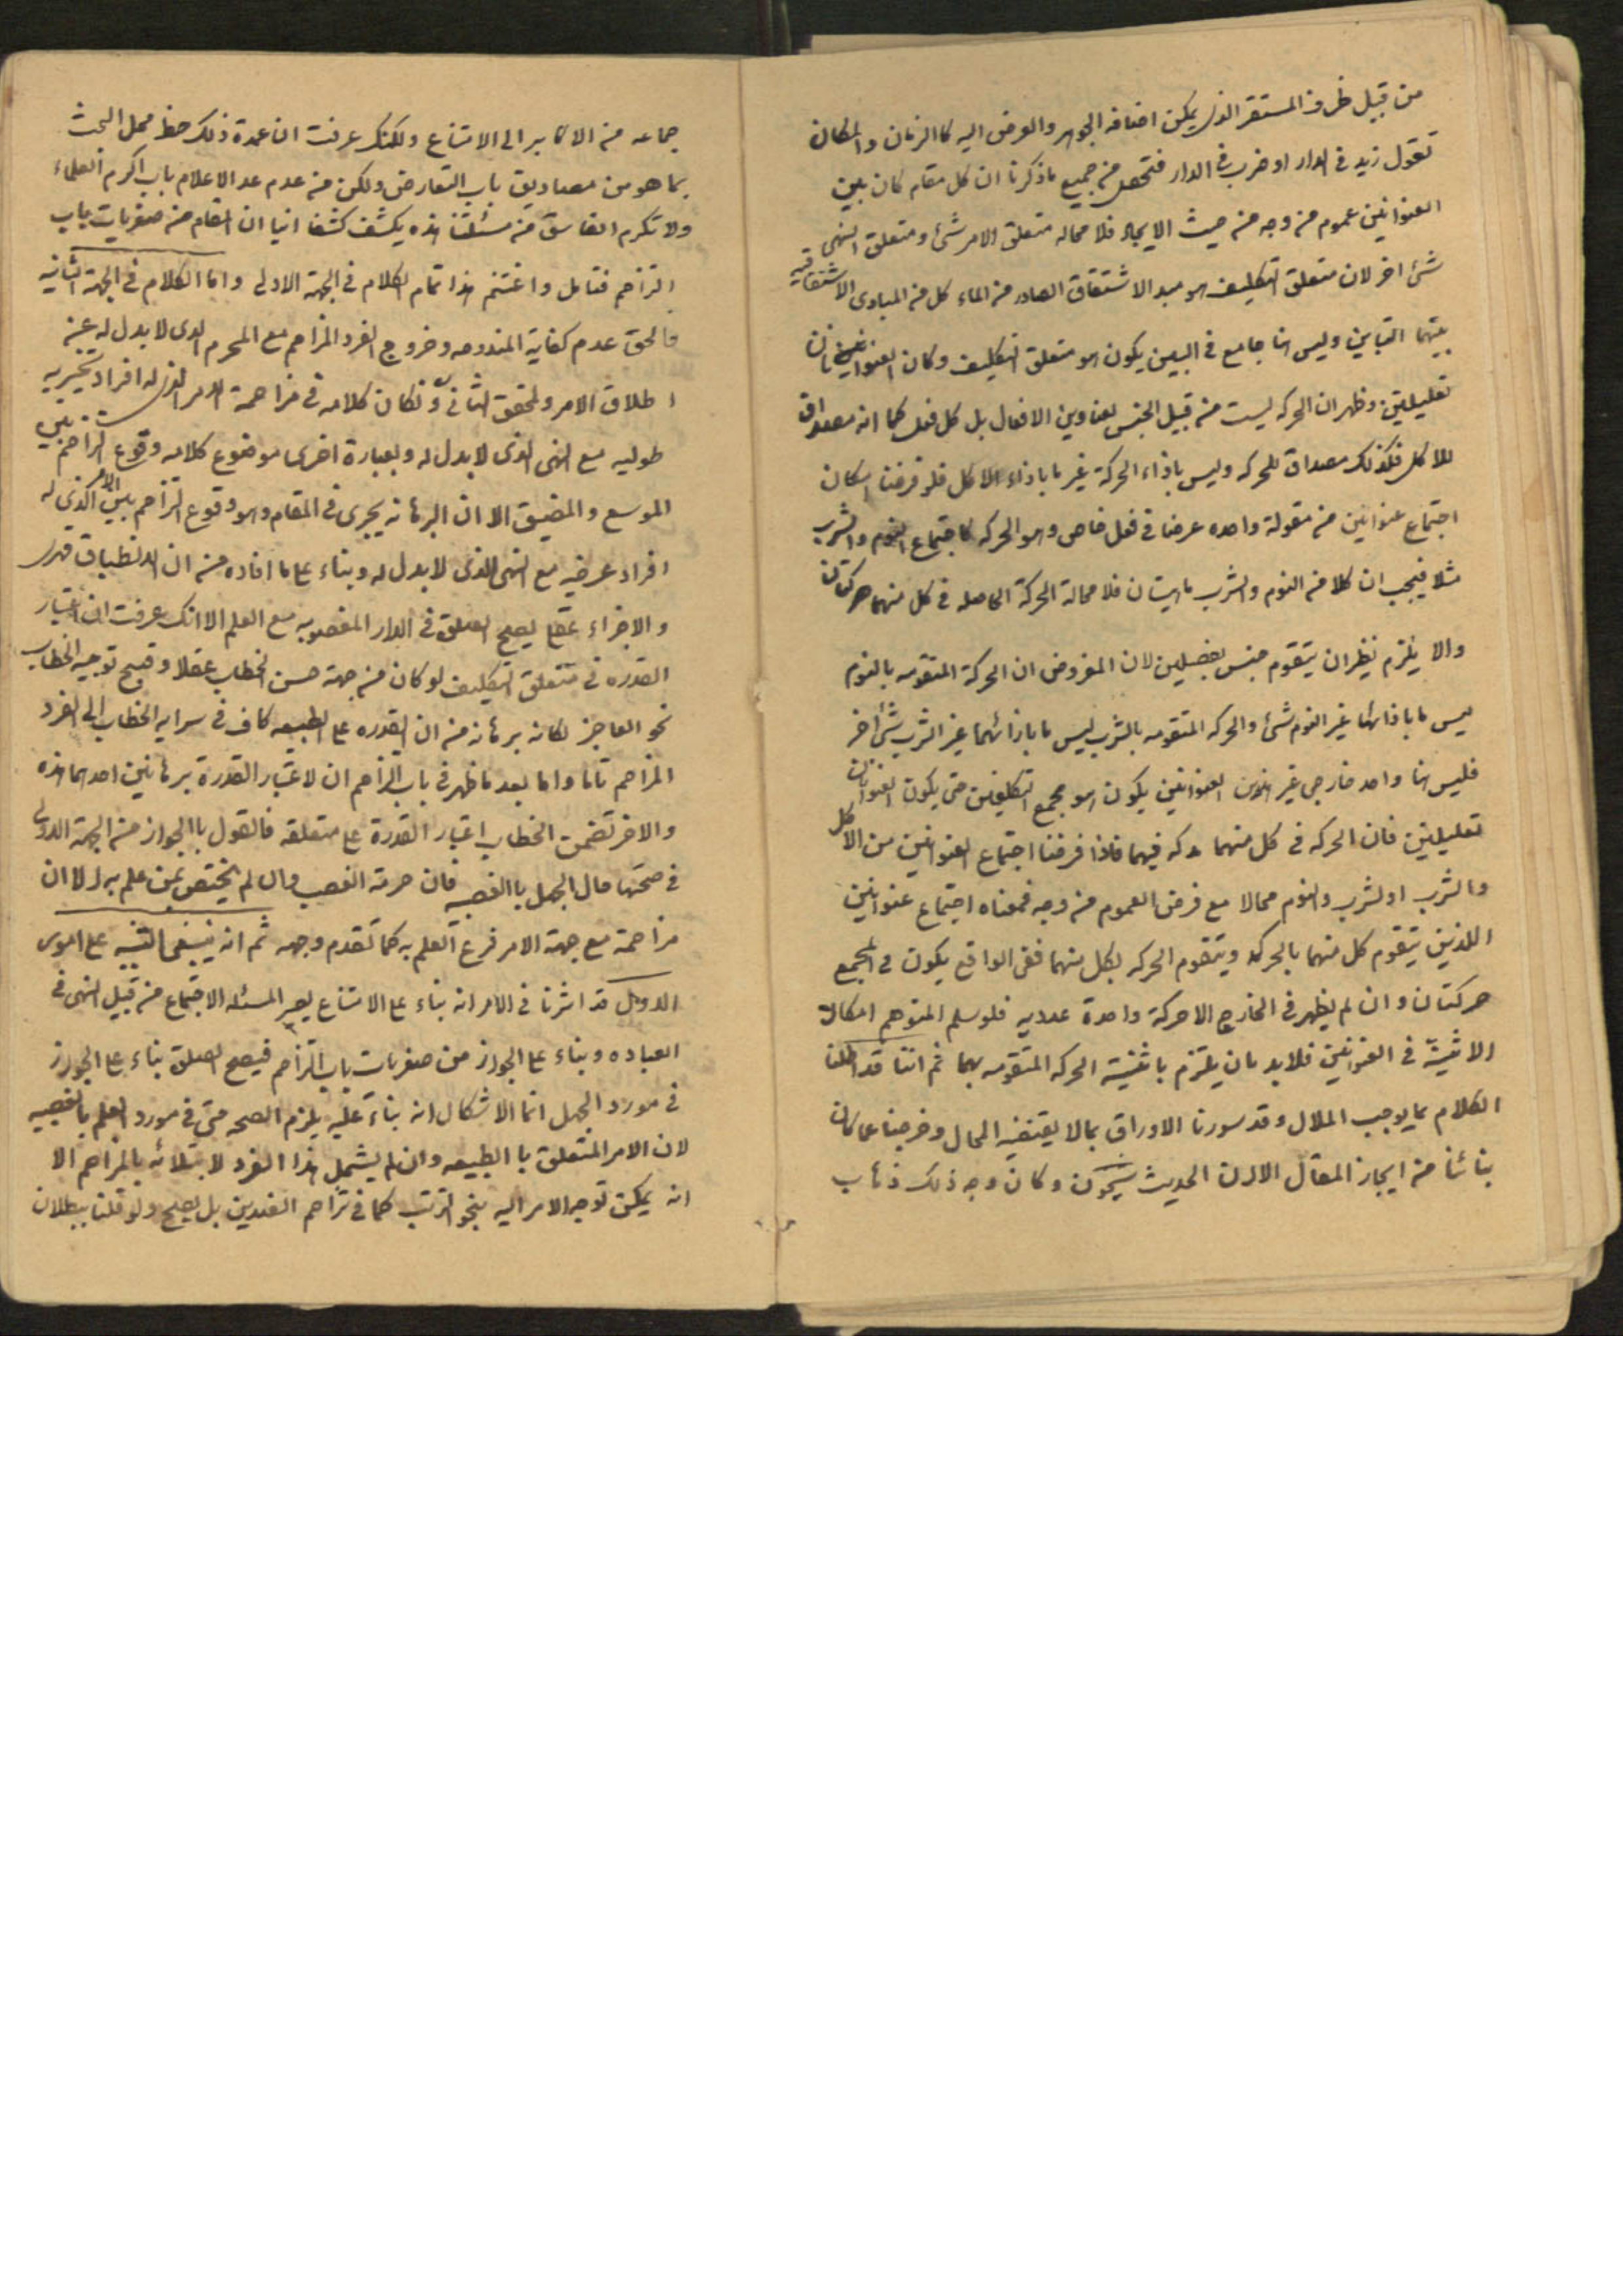 من قبيل ظرف المستقر الذى يمكن اضافه الجوهر والعرض اليه كاالزمان والمكان
تقول زيد فى الدار او ضرب فى الدار فتحصل من جميع ماذكرنا ان كل مقام كان بين
العنوانين عموم من وجه من حيث الايجاد فلا محاله متعلق الامر شئ ومتعلق النهى
شئ اخر لان متعلق التكليف هو مبدء الاشتقاق الصادر من الماء كل من المبادى الاشتقاقيه
بينهما التباين وليس هنا جامع فى البين يكون هو متعلق التكليف وكان العنوانان
تعليليتين وظهر ان الحركه ليست من قبيل الجنس لعناوين الافعال بل كل فعل كما انه مصداق
للاكل فكذلك مصداق للحركه وليس باذاء الحركة غير ما باذاء الاكل فلو فرضنا امكان
اجتماع عنوانين من مقولة واحده عرضا فى فعل خاص وهو الحركه كاجتماع النوم والشرب
مثلا فيجب ان كلا من النوم والشرب ماهيتان فلا محالة الحركة الحاصله فى كل منهما حركتان
والا يلزم نظير ان يتقوم جنس بفصلين لان المفروض ان الحركة المتقومه بالنوم
ليس ما باذائها غير النوم شئ والحركه المتقومه بالشرب ليس ما باذائهما غير الشرب شئ اخر
فليس هنا واحد خارجى غير هذين العنوانين يكون هو مجمع التكليفين حتى يكون العنوانان
تعليليتين فان الحركه فى كل منهما حركه فيهما فاذا فرضنا اجتماع العنوانين من الاكل
والشرب او الشرب والنوم محالا مع فرض العموم من وجه فمعناه اجتماع عنوانين
اللذين يتقوم كل منهما بالحركة ويتقوم الحركه بكل منهما ففى الواقع يكون فى المجمع
حركتان وان لم يظهر فى الخارج الا حركة واحدة عدديه فلو سلم المتوهم امكان
الاثنينيّة فى العنوانين فلابد بان يلتزم باثنينية الحركه المتقومه بهما ثم اننا قد اطلنا
الكلام بما يوجب الملال وقد سورنا الاوراق بمالا يقتضيه المحال وخرجنا عما كان
بنائنا من ايجاز المقال الا ان الحديث شجون وكان وجه ذلك ذهاب
جماعه من الاكابر الى الامتناع ولكنك عرفت ان عمدة ذلك خلط محل البحث
بما هو من مصاديق باب التعارض ولكن من عدم عد الاعلام باب اكرم العلماء
ولا تكرم الفاسق من مسئلتنا هذه يكشف كشفا انيا ان المقام من صغريات باب
التزاحم فتامل واغتنم هذا تمام الكلام فى الجهة الاولى واما الكلام فى الجهة الثانيه
فالحق عدم كفاية المندوحه وخروج الفرد المزاحم مع المحرم الذى لا بدل له عن
اطلاق الامر والمحقق الثانى وان كان كلامه فى مزاحمة الامر الذى له افراد تخييريه
طوليه مع النهى الذى لا بدل له وبعبارة اخرى موضوع كلامه وقوع التزاحم بين
الموسع والمضيق الا ان البرهانه يجرى فى المقام وهو وقوع التزاحم بين الامر الذى له
افراد عرضيه مع النهى الذى لا بدل له وبناء على ما افاده من ان الانطباق قهرى
والاجزاء عقلى يصح الصلوة فى الدار المغصوبه مع العلم الا انك عرفت ان اعتبار
القدره فى متعلق التكليف لو كان من جهة حسن الخطاب عقلا وقبح توجيه الخطاب
نحو العاجز لكانه برهانه من ان القدره على الطبيعه كاف فى سرايه الخطاب الى الفرد
المزاحم تاما واما بعد ما ظهر فى باب التزاحم ان لاعتبار القدرة برهانين احدهما هذه
والاخر تضمن الخطاب اعتبار القدرة على متعلقه فالقول باالجواز من الجهة الاولى
فى صحتها حال الجهل باالغصب فان حرمة الغصب وان لم يختص بمن علم به الا ان
مزاحمة مع جهة الامر فرع العلم به كما تقدم وجهه ثم انه ينبغى التنبيه على امور
الاول قد اشرنا فى الامر انه بناء على الامتناع يصير المسئله الاجتماع من قبيل النهى فى
العباده وبناء على الجواز من صغريات باب التزاحم فيصح الصلوة بناء على الجواز
فى مورد الجهل انما الاشكال انه بناءً عليه يلزم الصحه حتى فى مورد العلم بالغصبيه
لان الامر المتعلق باالطبيعه وان لم يشمل هذا الفرد لابتلائه بالمزاحم الا
انه يمكن توجه الامر اليه بنحو الترتب كما فى تزاحم الضدين بل يصح ولو قلنا ببطلان